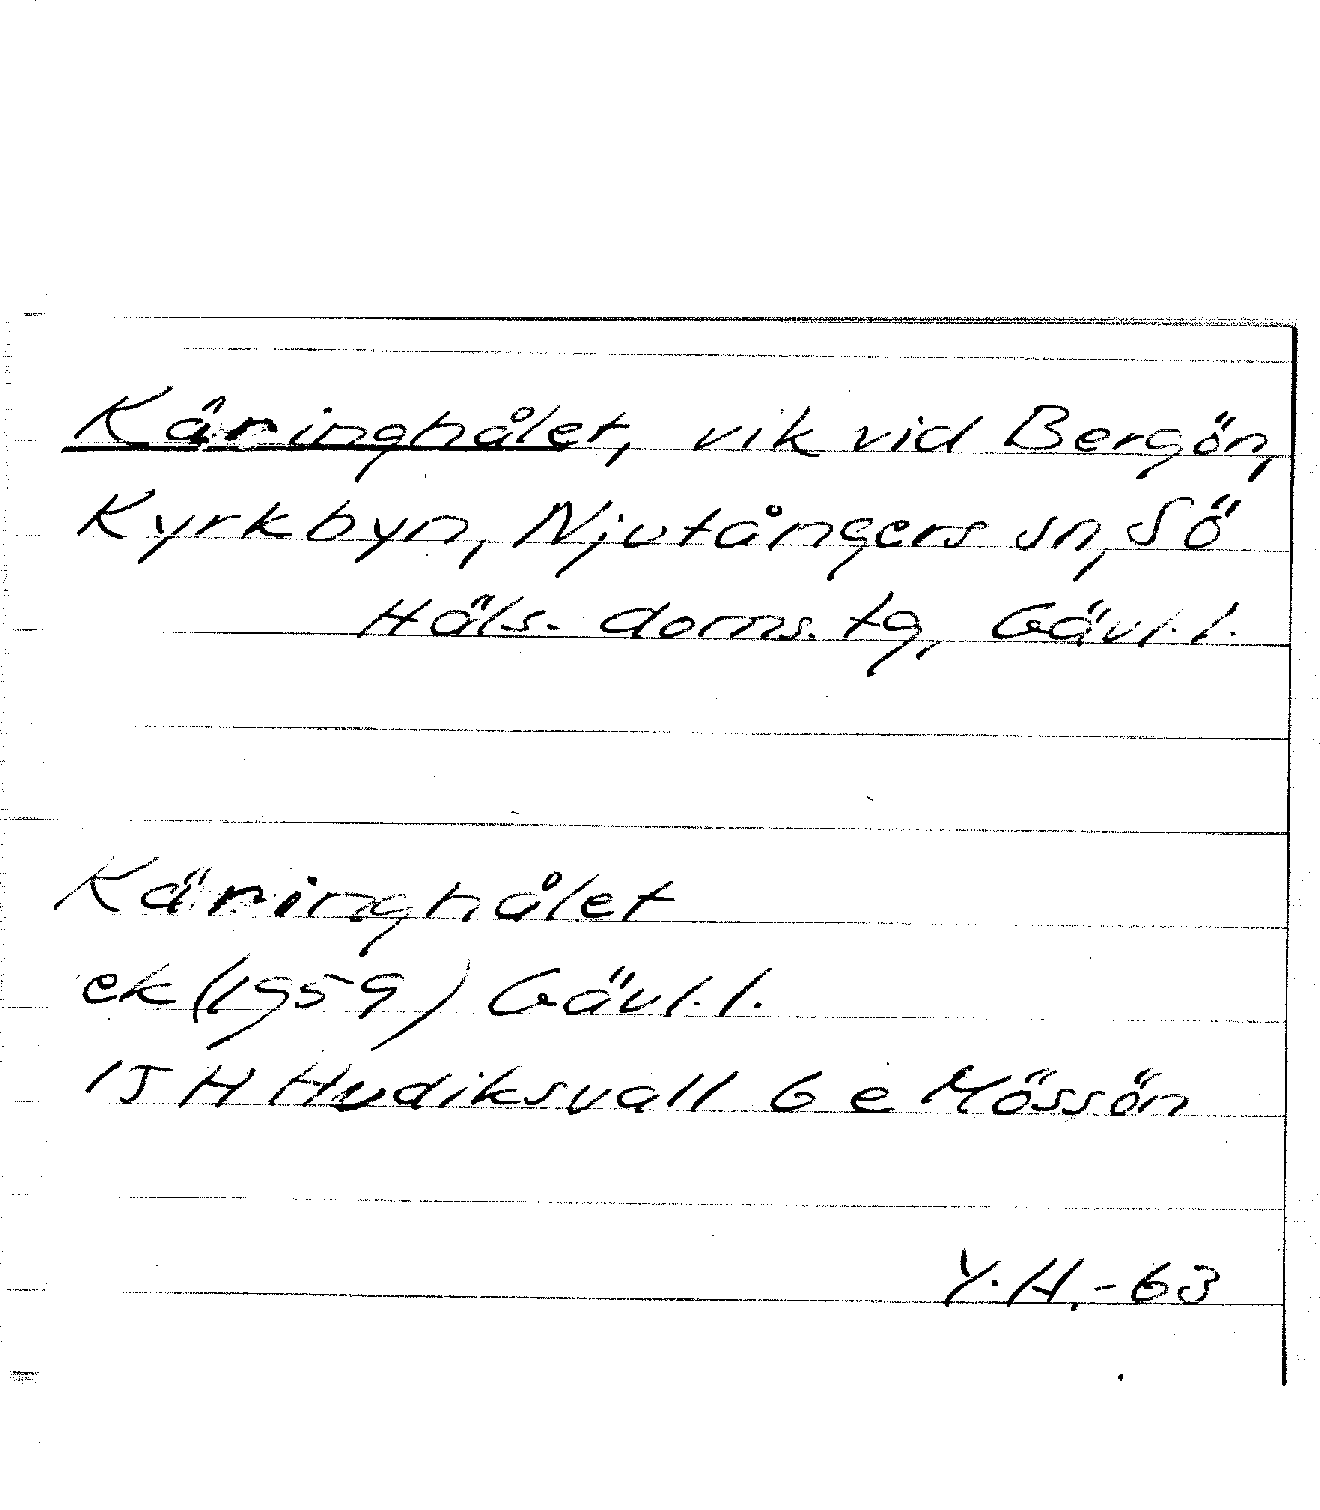 Käringhålet, vik vid Bergön,
Kyrkbyn, Njutångers sn, Sö
Häls. doms. tg, Gävl. l.
Käringhålet
ek (1959) Gävl. l.
15 H Hudiksvall 6 e Mössön
Y. H. -63